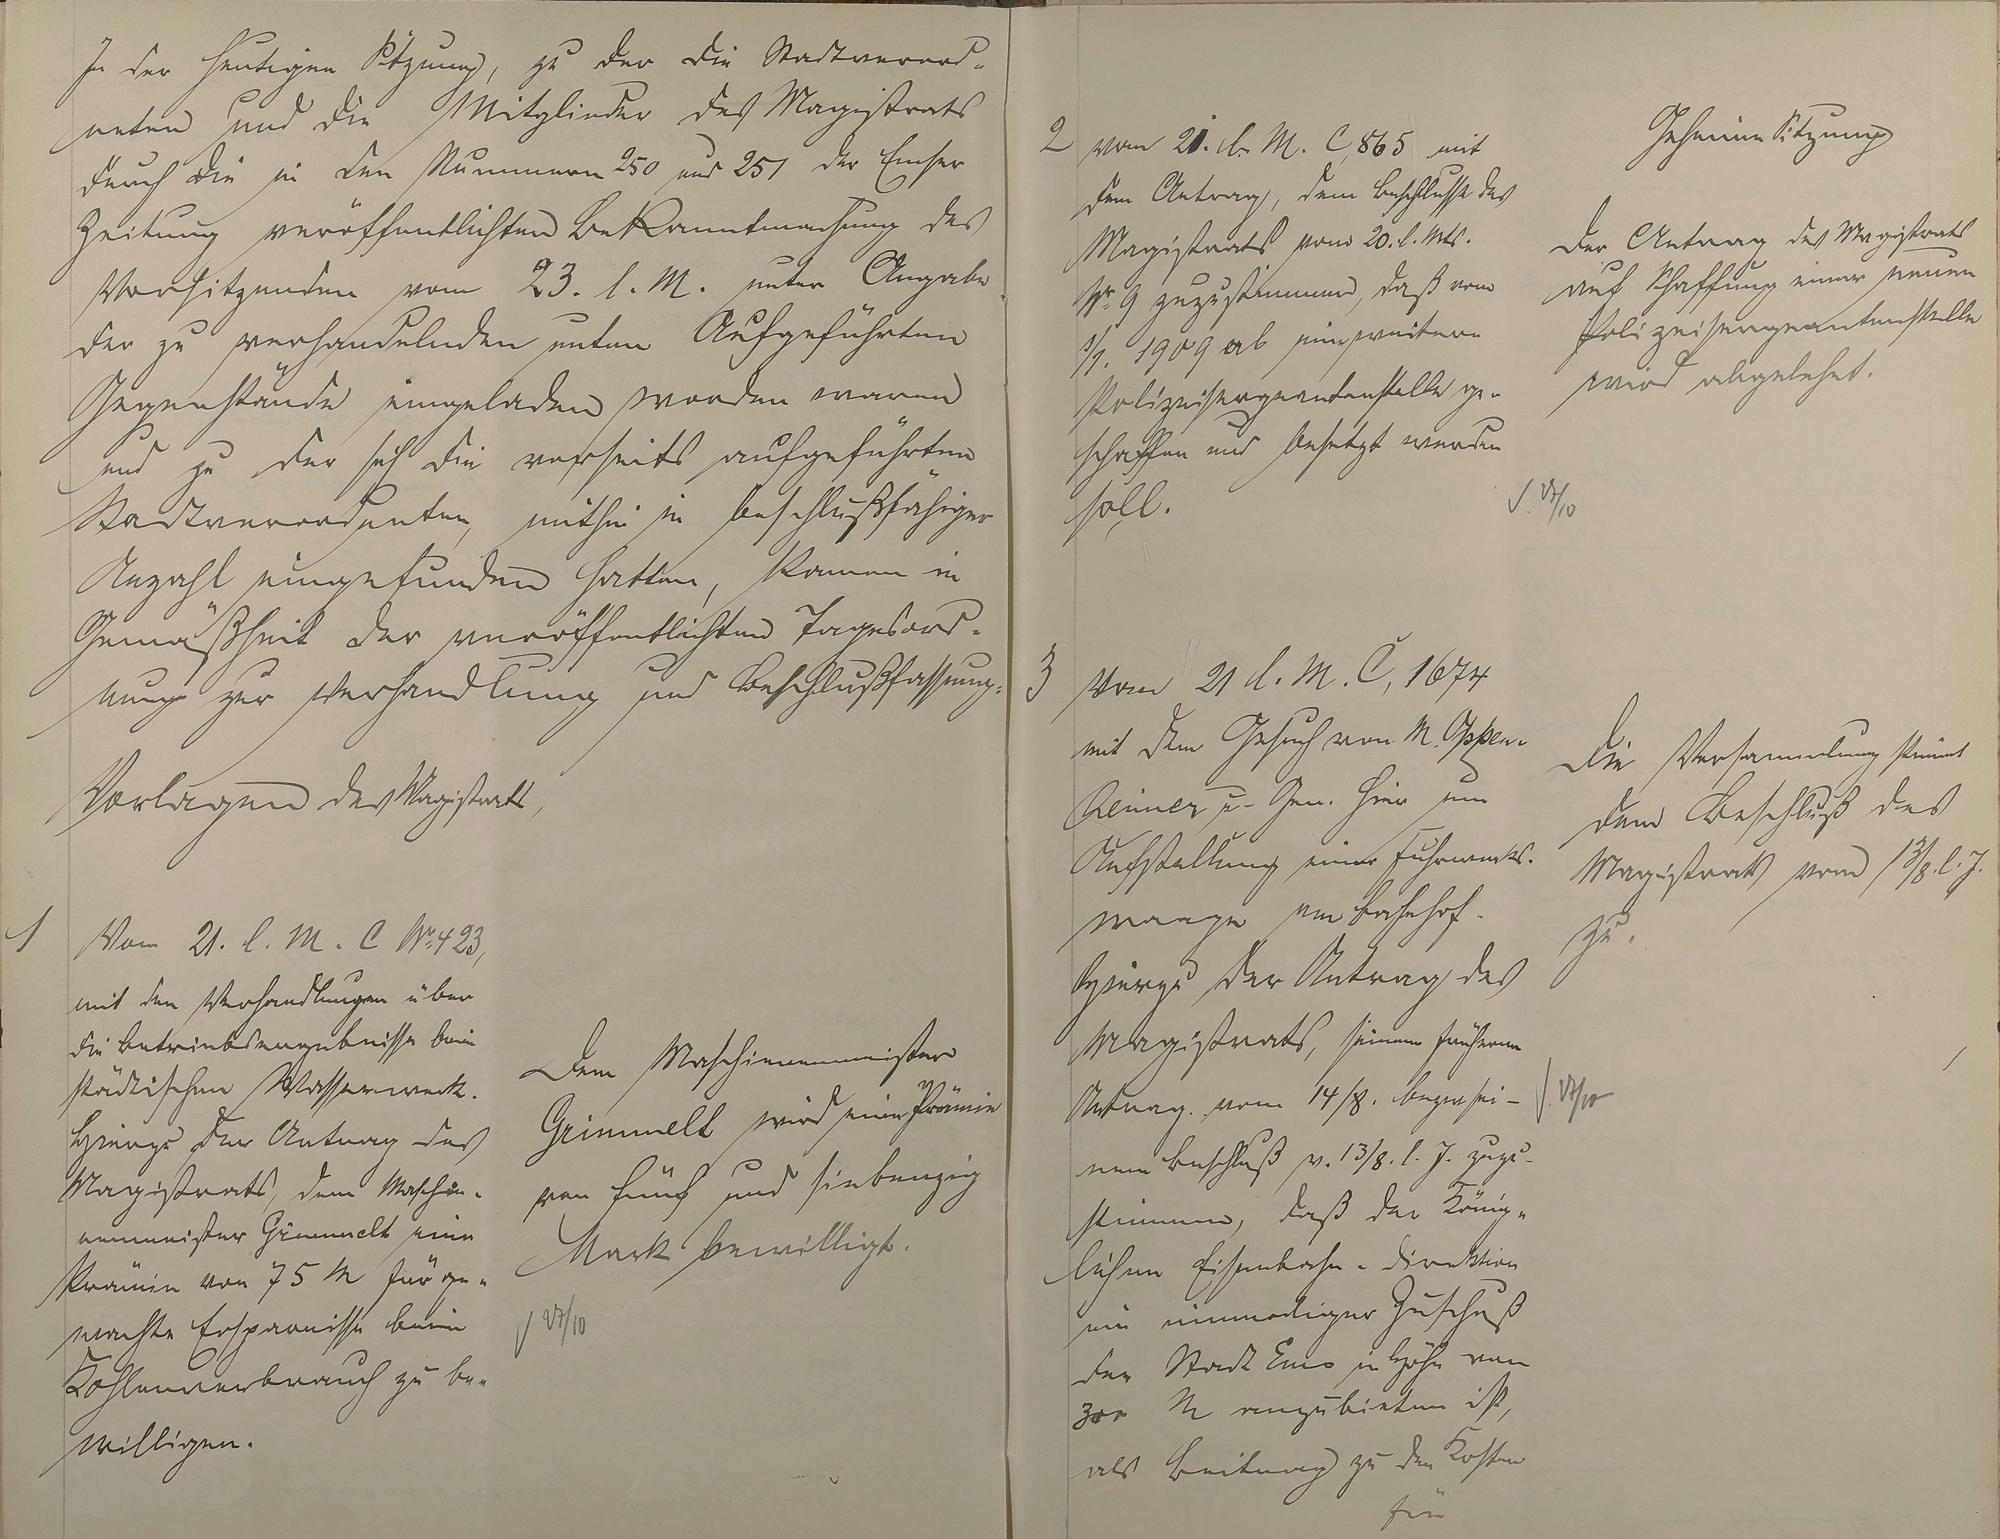 In der heutigen Sitzung, zu der die Stadtverord-
neten und die Mitglieder des Magistrats
durch die in den Nummern 250 und 251 der Emser
Zeitung veröffentlichten Bekanntmachung des
Vorsitzenden vom 23. l. M. unter Angabe
der zu verhandelnden unten Aufgeführten
Gegenstände eingeladen worden waren
und zu der sich die vorseits aufgeführten
Stadtverordneten, mithin in beschlußfähiger
Anzahl eingefunden hatten, kamen in
Gemäßheit der veröffentlichten Tagesord-
nung zur Verhandlung und Beschlußfassung:
Vorlagen des Magistrats,
1 Vom 21. l. M. C Nr. 423,
mit den Verhandlungen über
die Betriebsergebnisse beim
städtischen Wasserwerk.
Hierzu der Antrag des
Magistrats, dem Maschin-
enmeister Grimmelt eine
Prämie von 75 M für ge-
machte Ersparnisse beim
Kohlenverbrauch zu be-
willigen.
Dem Maschinenmeister
Grimmelt wird eine Prämie
von fünf und siebenzig
Mark bewilligt.
27/10
2 Vom 21. l. M. C, 865 mit
dem Antrag, dem Beschlusse des
Magistrats vom 20. l. Mts.
Nr. 9 zuzustimmen, daß vom
1/1. 1909 ab eine weitere
Polizeisergeantenstelle ge-
schaffen und besetzt werden
soll.
Geheime Sitzung
Der Antrag des Magistrats
auf Schaffung einer neuen
Polizeisergeantenstelle
wird abgelehnt.
27/10
3 Vom 21 l. M. C, 1674
mit dem Gesuch von M. Oppen-
heimer u. Gen. hier um
Aufstellung einer Fuhrwerks-
waage am Bahnhof.
Hierzu der Antrag des
Magistrats, seinem früheren
Antrag vom 14/8. bezw. sei-
nem Beschluß v. 13/8. l. J. zuzu-
stimmen, daß der König-
lichen Eisenbahn-Direktion
ein einmaliger Zuschuß
der Stadt Ems in Höhe von
300 M anzubieten ist,
als Beitrag zu den Kosten
für
Die Versammlung stimmt
dem Beschluß des
Magistrats vom 13/8. l. J.
zu.
27/10